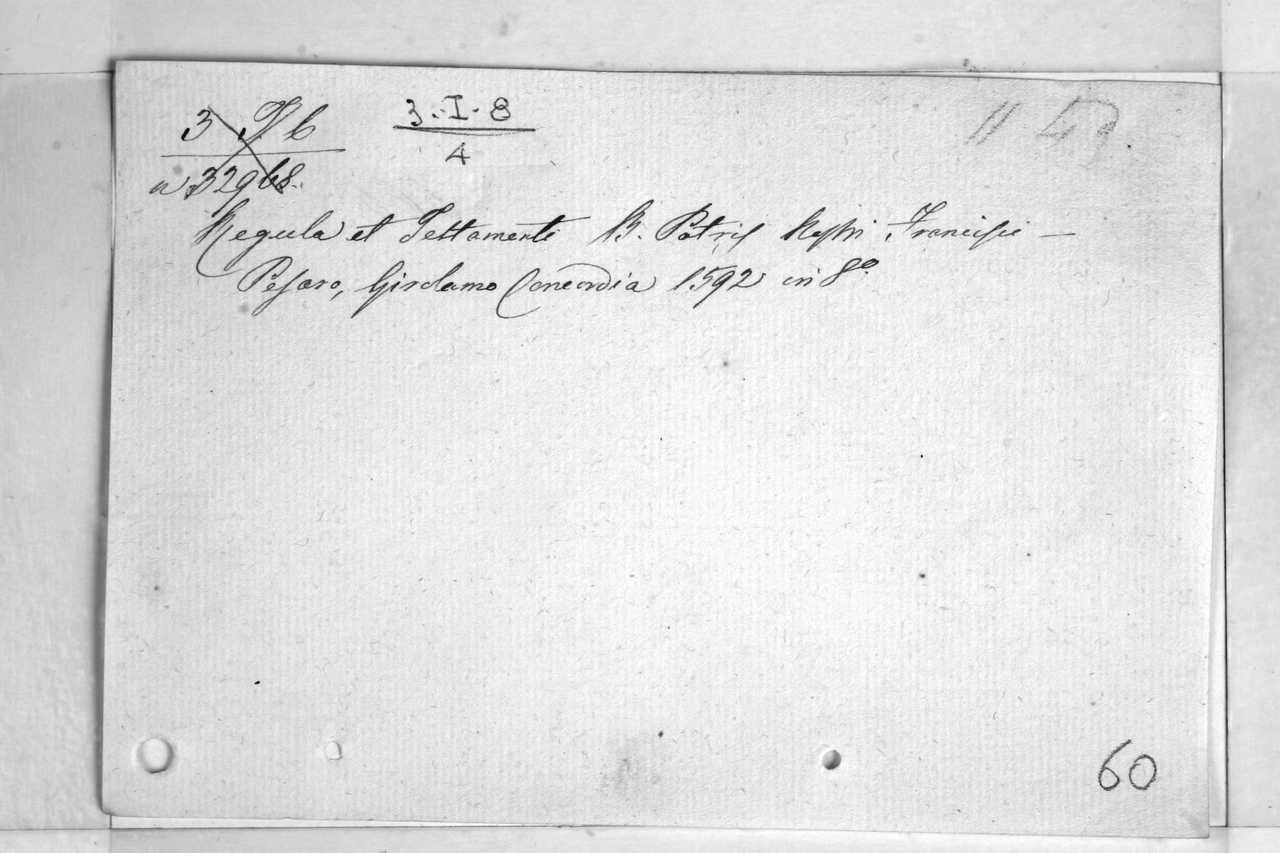 3 P 6
n 32968.
3.-I-8
4
Regula et Testamenti B. Patris Francisci —
Pesaro, Girolamo Concordia 1592 in 8º
60